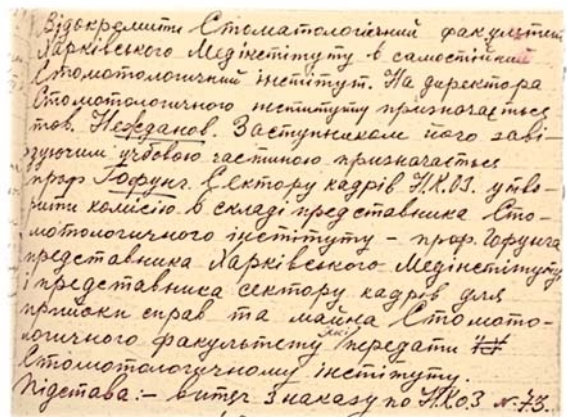 Відокремити Стоматологічний факультет
Харківського Медінстітуту в самостійний
Стомотологичний інстітут. На директора
Стомотологичного інституту призначається
тов. Нежданов. Заступником його заві-
дуючим учбовою частиною призначається
проф Гофунг. Сектору кадрів Н.К.ОЗ. утво-
рити комісію в складі представника Сто-
мотологичного інстітуту – проф. Гофунга
представника Харківського Медінстітуту
і представника сектору кадров для
прийоки справ та майна Стомото-
логичного факультету які передати
Стомотологичному інстітуту.
Підстава:– витяг з наказу по Н.К.ОЗ № 73.